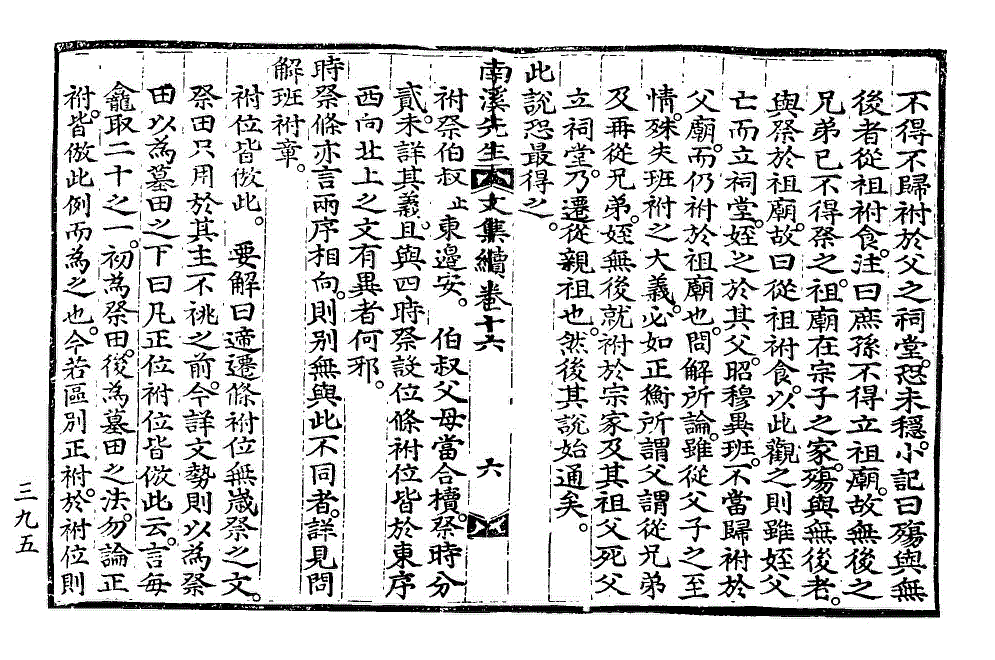 不得不歸祔於父之祠堂。恐未穩。小記曰殤與無
後者從祖祔食。注曰庶孫不得立祖廟。故無後之
兄弟已不得祭之。祖廟在宗子之家。殤與無後者。
與祭於祖廟。故曰從祖祔食。以此觀之則雖姪父
亡而立祠堂。姪之於其父。昭穆異班。不當歸祔於
父廟。而仍祔於祖廟也。問解所論。雖從父子之至
情。殊失班祔之大義。必如正衡所謂父謂從兄弟
及再從兄弟。姪無後就祔於宗家及其祖父死父
立祠堂。乃遷從親祖也。然後其說始通矣。
此說恐最得之。
南溪先生文集續卷十六 六
祔祭伯叔止東邊安。 伯叔父母當合櫝。祭時分
貳。未詳其義。且與四時祭設位條祔位皆於東序
西向北上之文有異者何邪。
時祭條亦言兩序相向。則別無與此不同者。詳見問
解班祔章。
祔位皆倣此。 要解曰遞遷條祔位無歲祭之文。
祭田只用於其主不祧之前。今詳文勢則以為祭
田以為墓田之下曰凡正位祔位皆倣此云。言每
龕取二十之一。初為祭田。後為墓田之法。勿論正
祔。皆倣此例而為之也。今若區別正祔。於祔位則
三九五